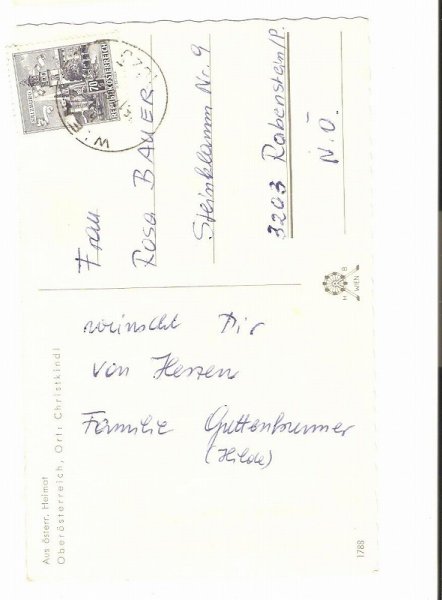 Frau
Rosa BAUER
Steinklamm Nr. 9
3203 Rabenstein/P.
N.Ö.
wünscht Dir
von Herzen
Familie Guttenbrunner
(Hilde)
Aus österr. Heimat
Oberösterreich, Ort: Christkindl
H B
WIEN
1788
REPUBLIK ÖSTERREICH
70